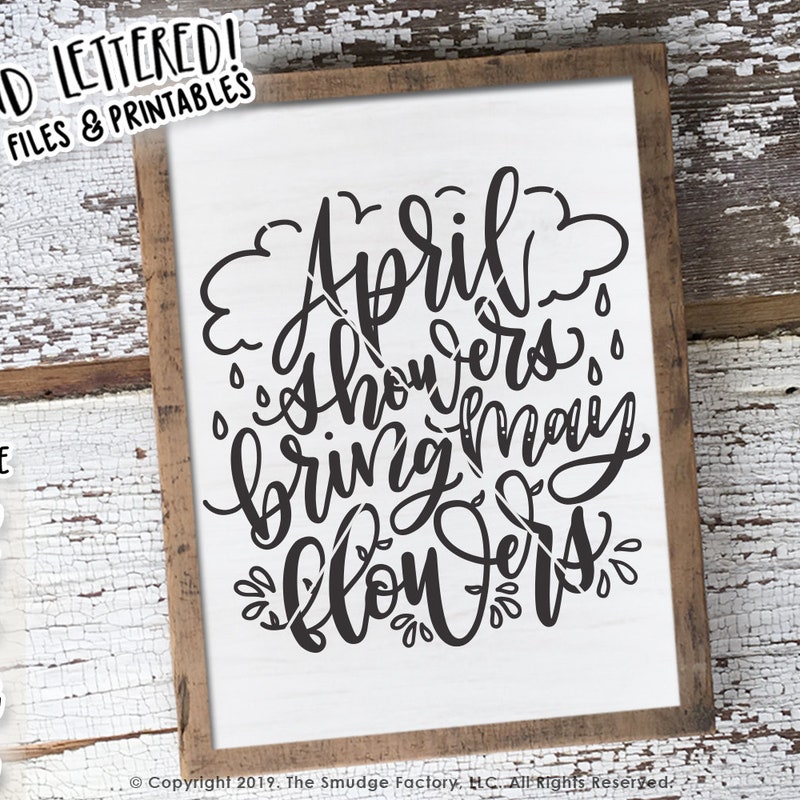 LETTERED!
FILES & PRINTABLES
April
showers
bring may
flowers
© Copyright 2019. The Smudge Factory, LLC. All Rights Reserved.